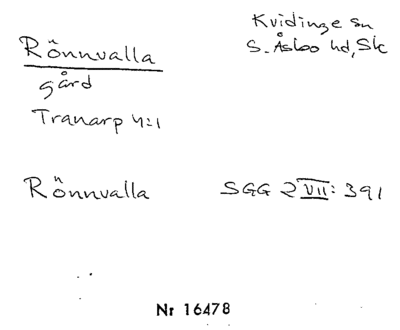 Rönnvalla
gård
Tranarp 4:1
Kvidinge sn
S. Åsbo hd, Sk
Rönnvalla SGG 2 VII: 391
Nr 16478